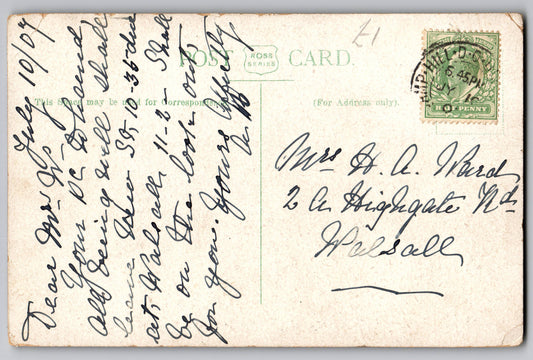 £1
POST CARD.
ROSS
SERIES
This Space may be used for Correspondence
(For Address only).
HALF PENNY
July 10/07
Dear Mr W.
Your P.C. to hand
All being well shall
leave New St, 10-35 due
at Walsall 11-2- Shall
be on the look out
for you. Yours Affectly
Mrs H. A. Ward
2 A Highgate Rd
Walsall